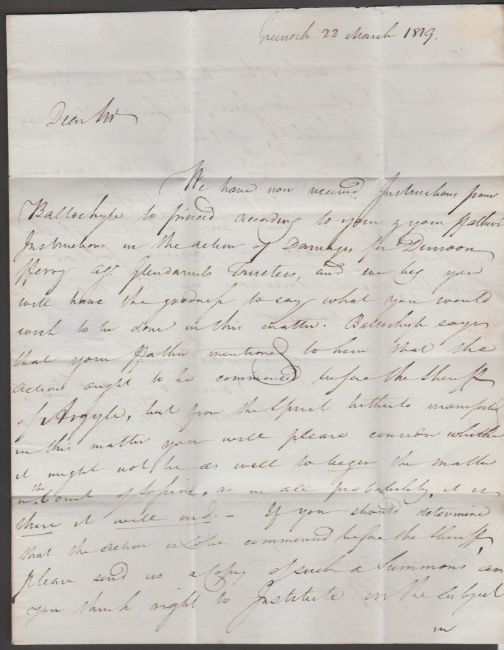 Greenock 22 March 1819.
Dear Sir
We have now received Instructions from
Ballochyle to proceed according to your & your Fathers
Instructions in the action of Damages for Dunoon
Ferry agt Glendaruels Trustees, and we beg you
will have the goodness to say what you would
wish to be done in this matter. Ballochyle says
that your Father mentioned to him that the
action ought to be commenced before the Sheriff
of Argyle, but from the Spirit hitherto manifested
in this matter you will please consider whether
it might not be as well to begin the matter
in the Court of Session, as in all probability, it is
there it will end – If you should determine
that the action is to be commenced before the Sheriff
please send us a Copy of such a Summons as
you think right to Institute on the subject
in